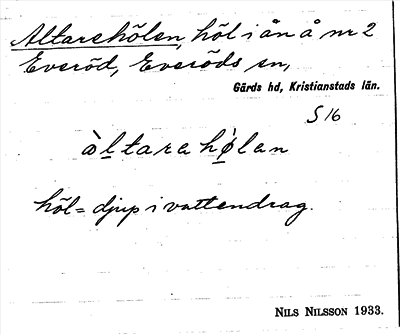 Altarehölen, höl i ån å nr 2
Everöd, Everöds sn,
Gärds hd, Kristianstads län.
S 16
àltarehø̀lan
höl = djup i vattendrag.
NILS NILSSON 1933.